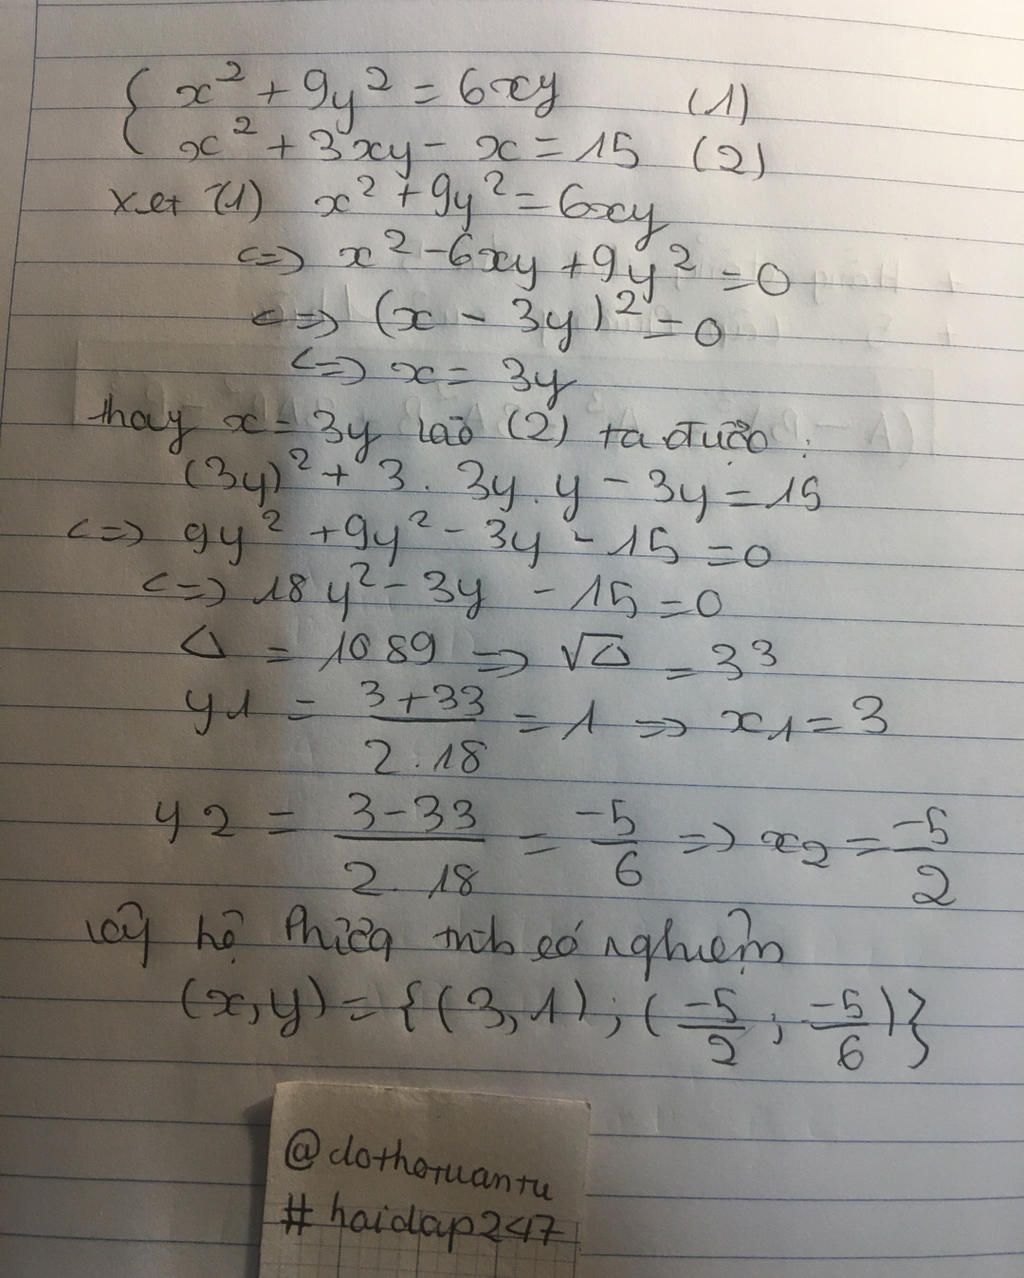 { x² + 9y² = 6xy (1)
x² + 3xy - x = 15 (2)
xét (1) x² + 9y² = 6xy
<=> x² - 6xy + 9y² = 0
<=> (x - 3y)² = 0
<=> x = 3y
thay x = 3y vào (2) ta được:
(3y)² + 3. 3y. y - 3y = 15
<=> 9y² + 9y² - 3y - 15 = 0
<=> 18y² - 3y - 15 = 0
Δ = 1089 => √Δ = 33
y1 = (3+33)/(2.18) = 1 => x1 = 3
y2 = (3-33)/(2.18) = -5/6 => x2 = -5/2
vậy hệ phương trình có nghiệm
(x,y) = {(3,1); (-5/2; -5/6)}
@dothotuantu
#hoidap247